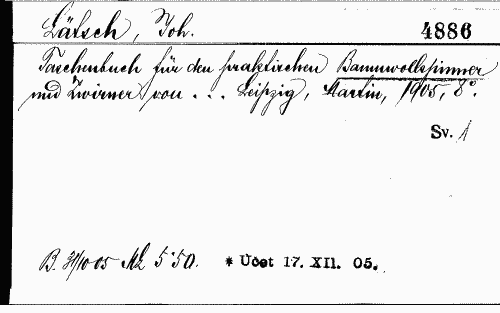 Lätsch, Joh. 4886
Taschenbuch für den praktischen Baumwollspinner
und Zwirner von . . . Leipzig, Martin, 1905, 8°.
Sv. 1
B. 31/10 05 Mk 5·50. * Učet 17. XII. 05.